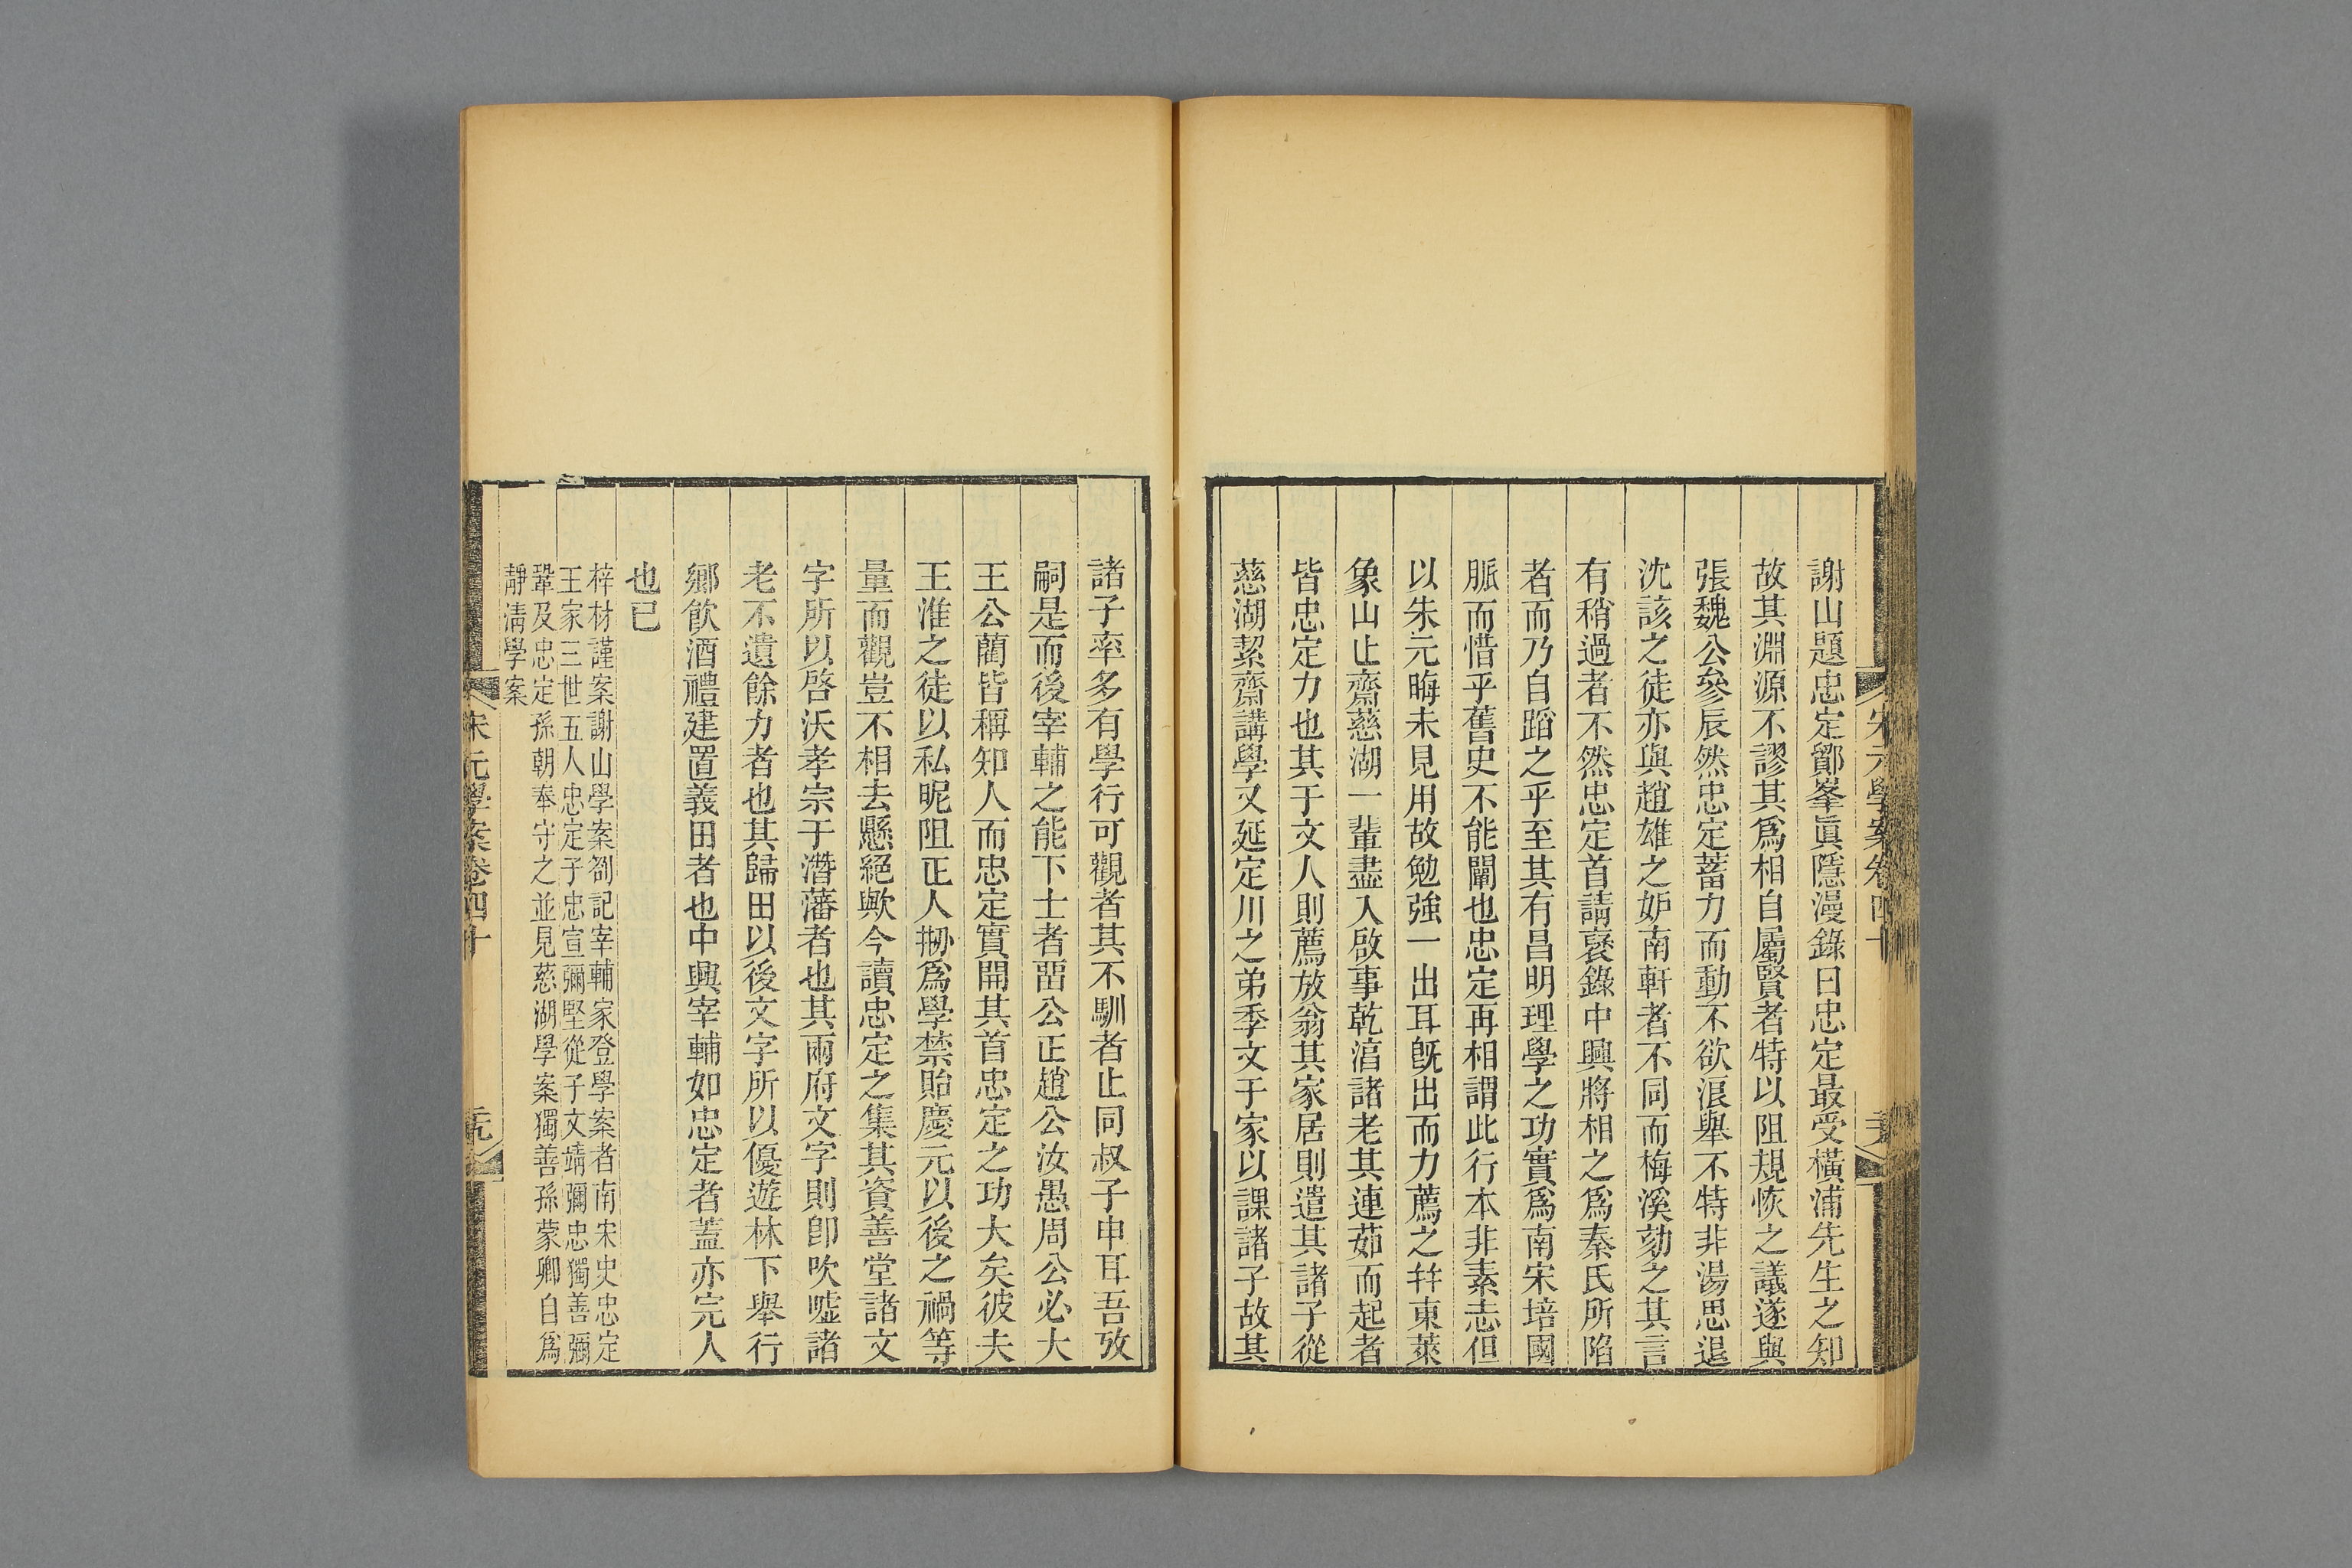 謝山題忠定鄮峯眞隱漫錄曰忠定最受橫浦先生之知
故其淵源不謬其爲相自屬賢者特以阻規恢之議遂與
張魏公參辰然忠定蓄力而動不欲浪舉不特非湯思退
沈該之徒亦與趙雄之妒南軒者不同而梅溪劾之其言
有稍過者不然忠定首請褒錄中興將相之爲秦氏所陷
者而乃自蹈之乎至其有昌明理學之功實爲南宋培國
脈而惜乎舊史不能闡也忠定再相謂此行本非素志但
以朱元晦未見用故勉強一出耳旣出而力薦之幷東萊
象山止齋慈湖一輩盡入啟事乾淳諸老其連茹而起者
皆忠定力也其于文人則薦放翁其家居則遣其諸子從
慈湖絜齋講學又延定川之弟季文于家以課諸子故其
諸子率多有學行可觀者其不馴者止同叔子申耳吾攷
嗣是而後宰輔之能下士者畱公正趙公汝愚周公必大
王公藺皆稱知人而忠定實開其首忠定之功大矣彼夫
王淮之徒以私昵阻正人刱爲學禁貽慶元以後之禍等
量而觀豈不相去懸絕歟今讀忠定之集其資善堂諸文
字所以啓沃孝宗于潛藩者也其兩府文字則卽吹噓諸
老不遺餘力者也其歸田以後文字所以優遊林下舉行
鄉飮酒禮建置義田者也中興宰輔如忠定者蓋亦完人
也已
梓材謹案謝山學案劄記宰輔家登學案者南宋史忠定
王家三世五人忠定子忠宣彌堅從子文靖彌忠獨善彌
鞏及忠定孫朝奉守之並見慈湖學案獨善孫蒙卿自爲
靜淸學案
宋元學案卷四十
宋元學案卷四十